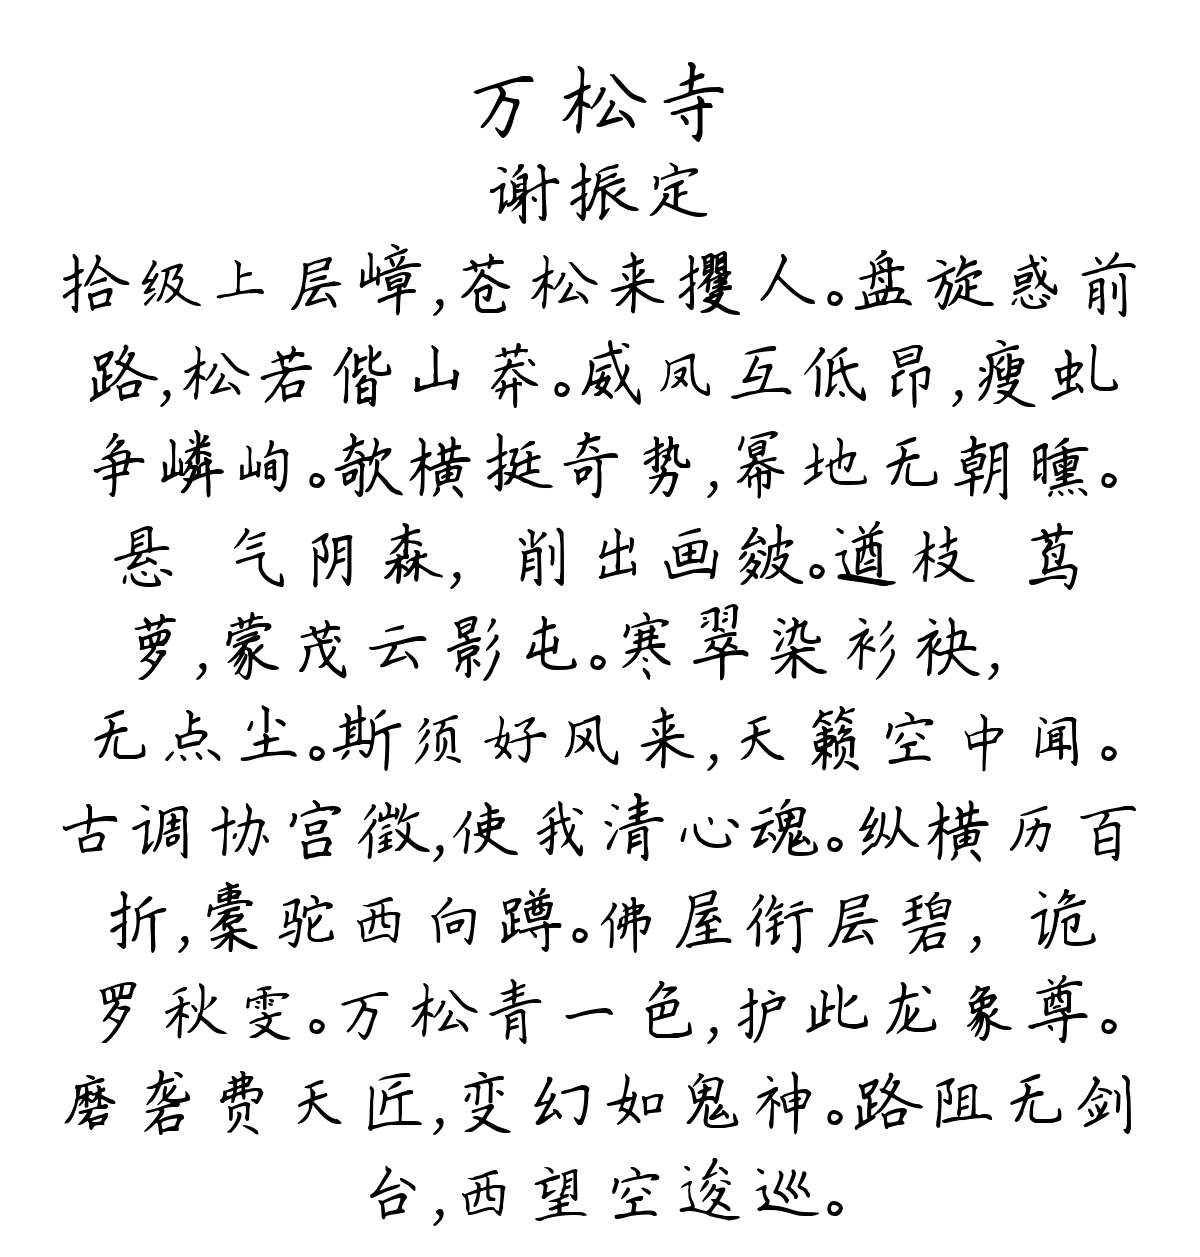 万松寺
谢振定
拾级上层嶂,苍松来攫人。盘旋惑前
路,松若偕山莽。威凤互低昂,瘦虬
争嶙峋。欹横挺奇势,幂地无朝曛。
悬 气阴森, 削出画皴。遒枝 茑
萝,蒙茂云影屯。寒翠染衫袂,
无点尘。斯须好风来,天籁空中闻。
古调协宫徵,使我清心魂。纵横历百
折,橐驼西向蹲。佛屋衔层碧, 诡
罗秋雯。万松青一色,护此龙象尊。
磨砻费天匠,变幻如鬼神。路阻无剑
台,西望空逡巡。